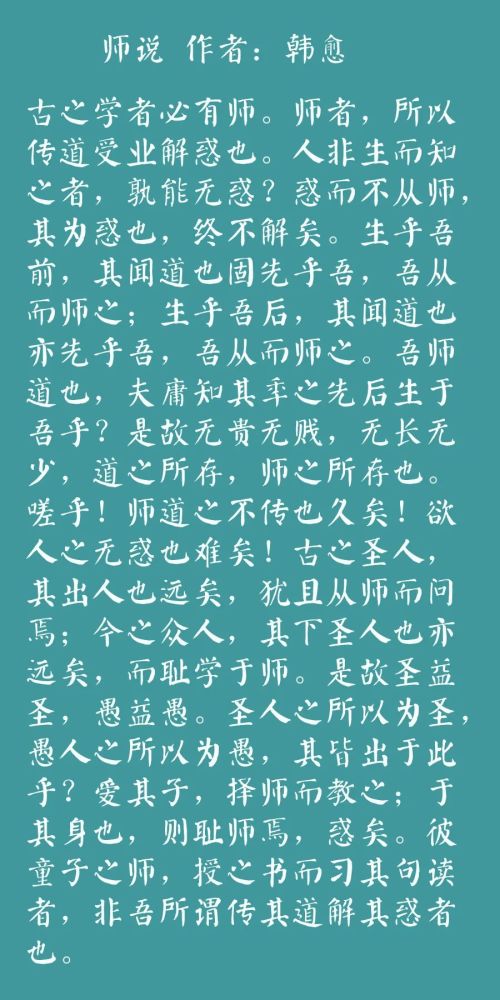 师说 作者：韩愈
古之学者必有师。师者，所以
传道受业解惑也。人非生而知
之者，孰能无惑？惑而不从师，
其为惑也，终不解矣。生乎吾
前，其闻道也固先乎吾，吾从
而师之；生乎吾后，其闻道也
亦先乎吾，吾从而师之。吾师
道也，夫庸知其年之先后生于
吾乎？是故无贵无贱，无长无
少，道之所存，师之所存也。
嗟乎！师道之不传也久矣！欲
人之无惑也难矣！古之圣人，
其出人也远矣，犹且从师而问
焉；今之众人，其下圣人也亦
远矣，而耻学于师。是故圣益
圣，愚益愚。圣人之所以为圣，
愚人之所以为愚，其皆出于此
乎？爱其子，择师而教之；于
其身也，则耻师焉，惑矣。彼
童子之师，授之书而习其句读
者，非吾所谓传其道解其惑者
也。